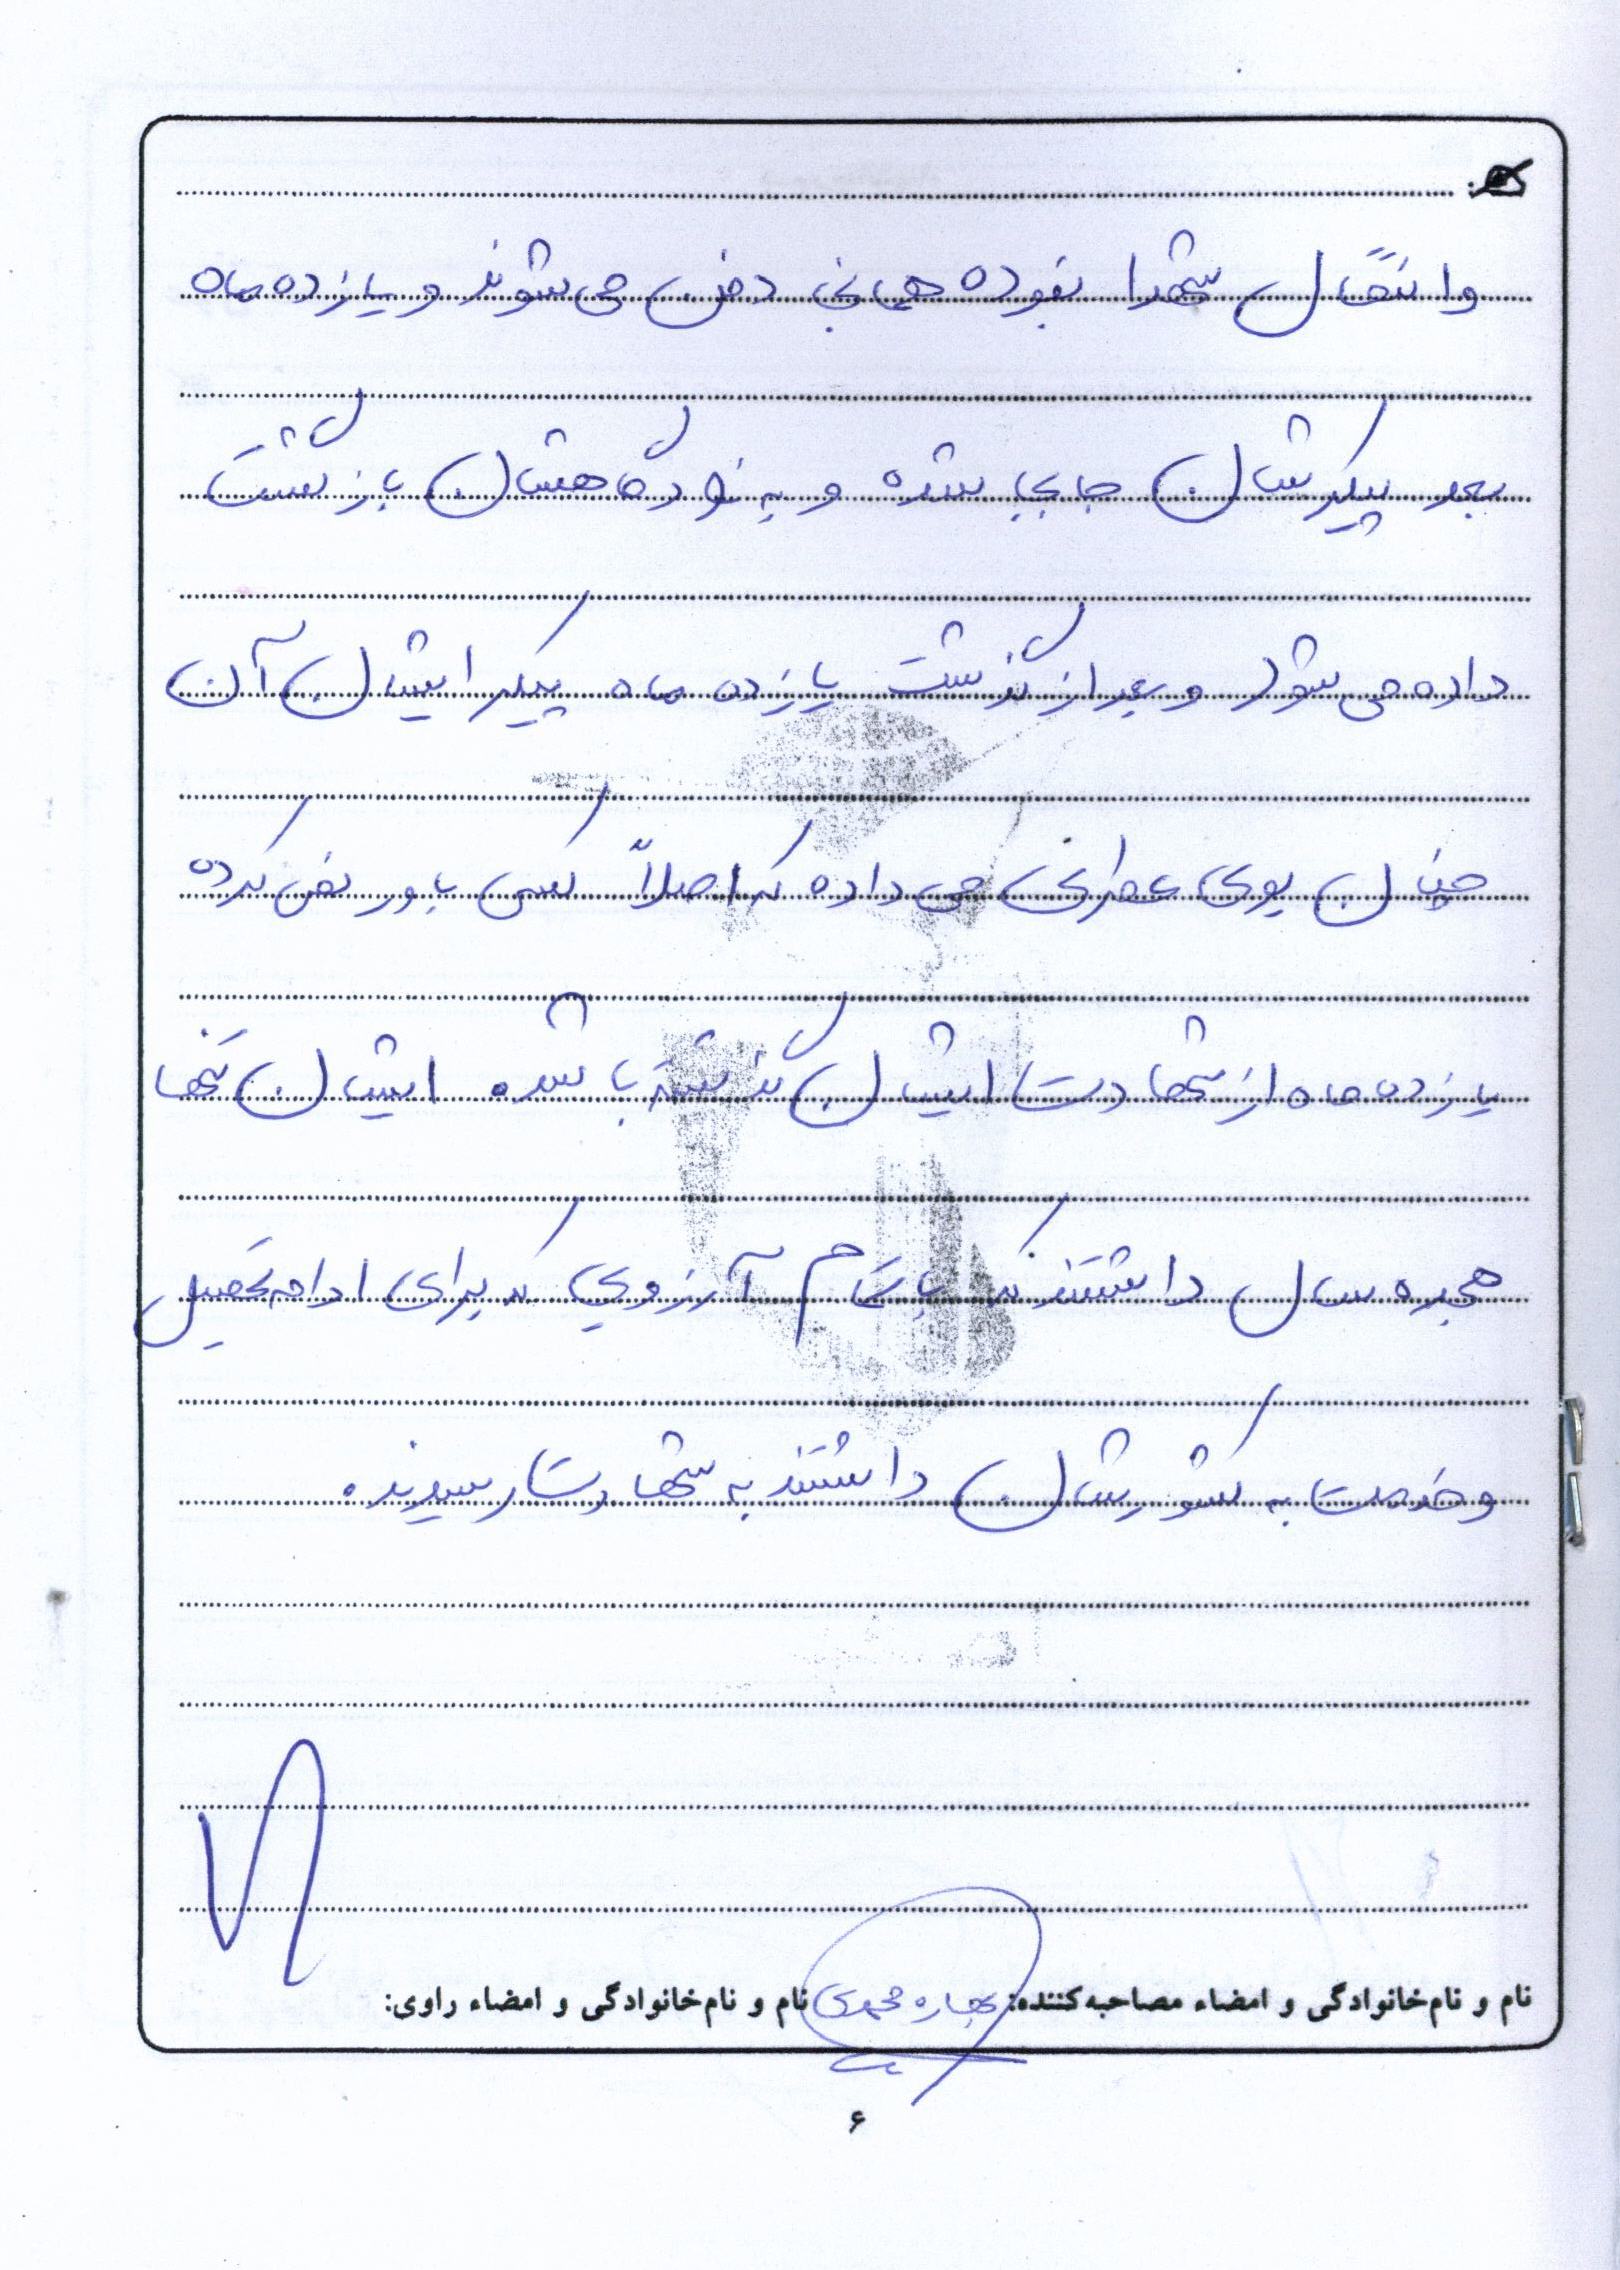 وانتقال شهدا نبوده همانجا دفن می شوند و یازده ماه
بعد پیکرشان جابجا شده و به زادگاهشان بازگشت
داده می شود و بعد از گذشت یازده ماه پیکر ایشان آن
چنان بوی عطری می داده که اصلاً کسی باور نمی کرده
یازده ماه از شهادت ایشان گذشته باشد. ایشان تنها
هجده سال داشتند که با تمام آرزویی که برای ادامه تحصیل
و خدمت به کشورشان داشتند به شهادت رسیدند.
نام و نام خانوادگی و امضاء مصاحبه کننده: بهاره محمدی نام و نام خانوادگی و امضاء راوی:
۶